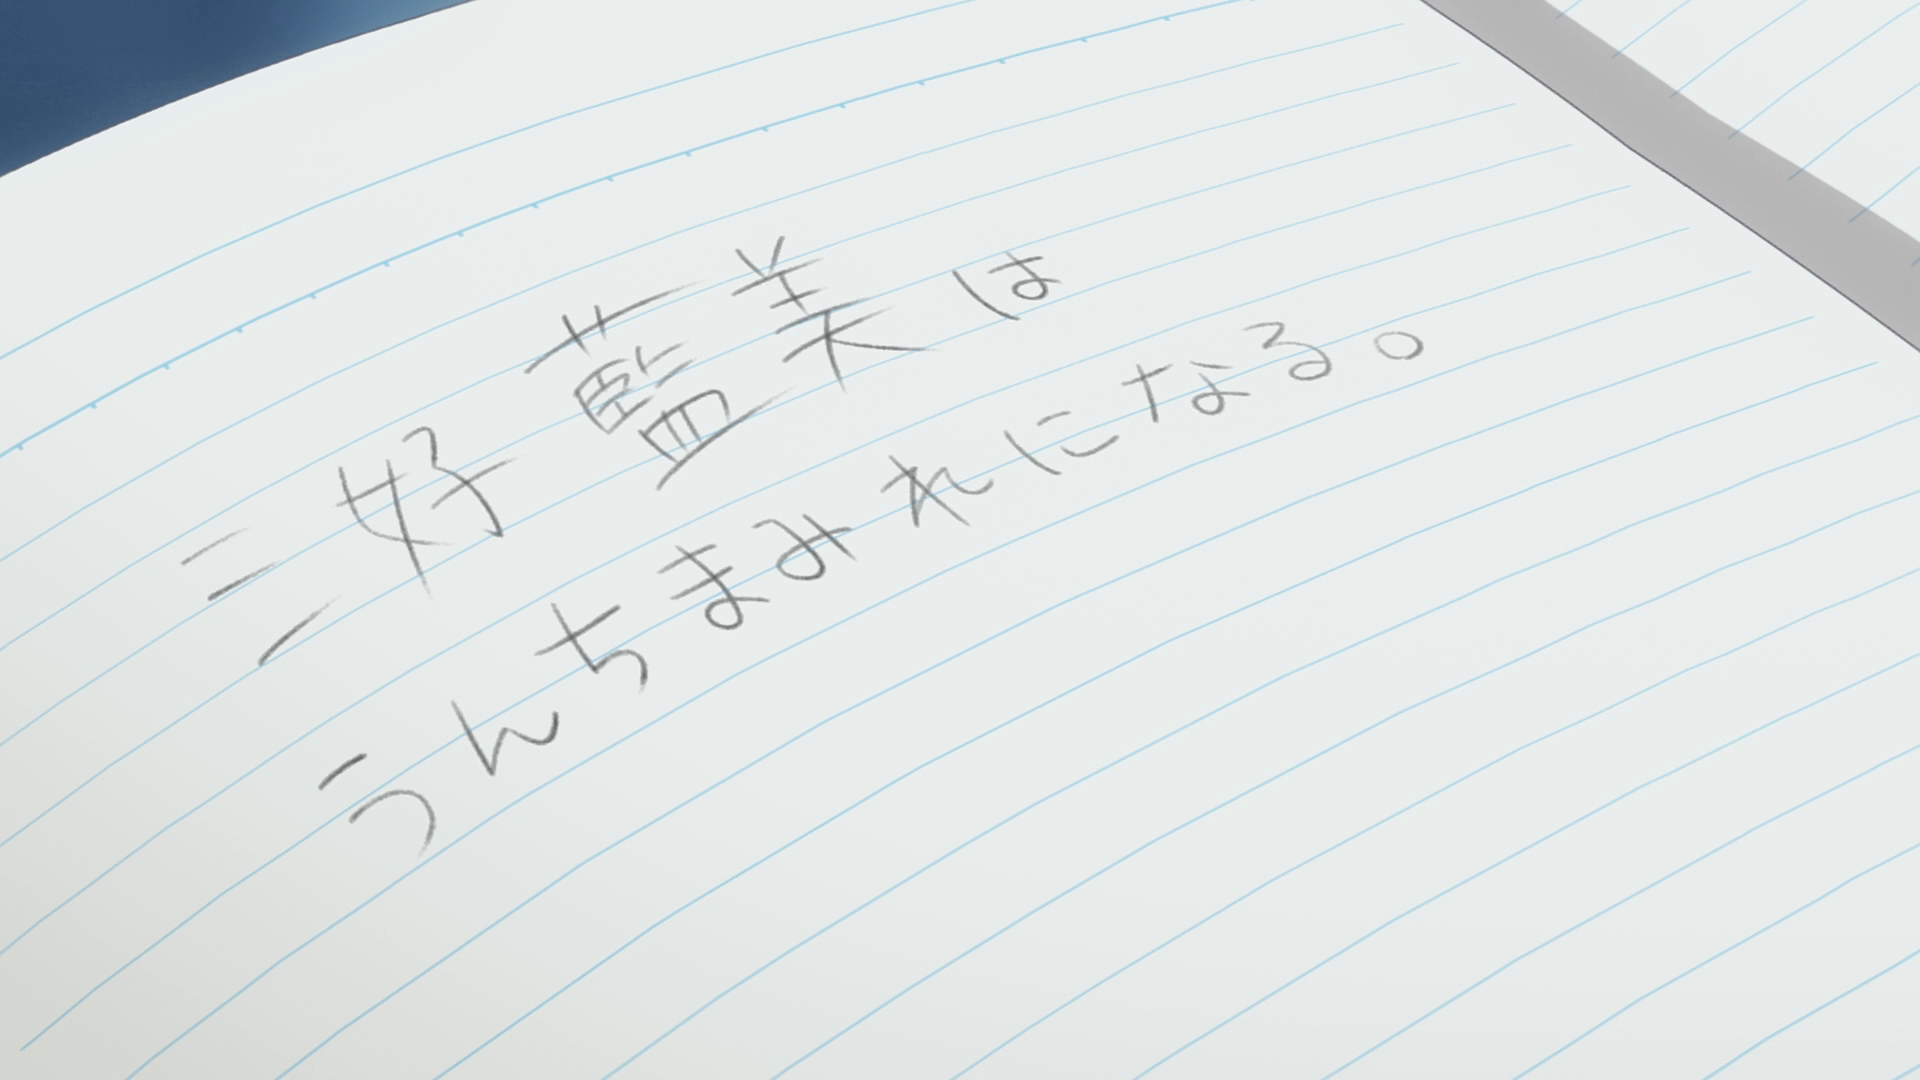 三好藍美は
うんちまみれになる。